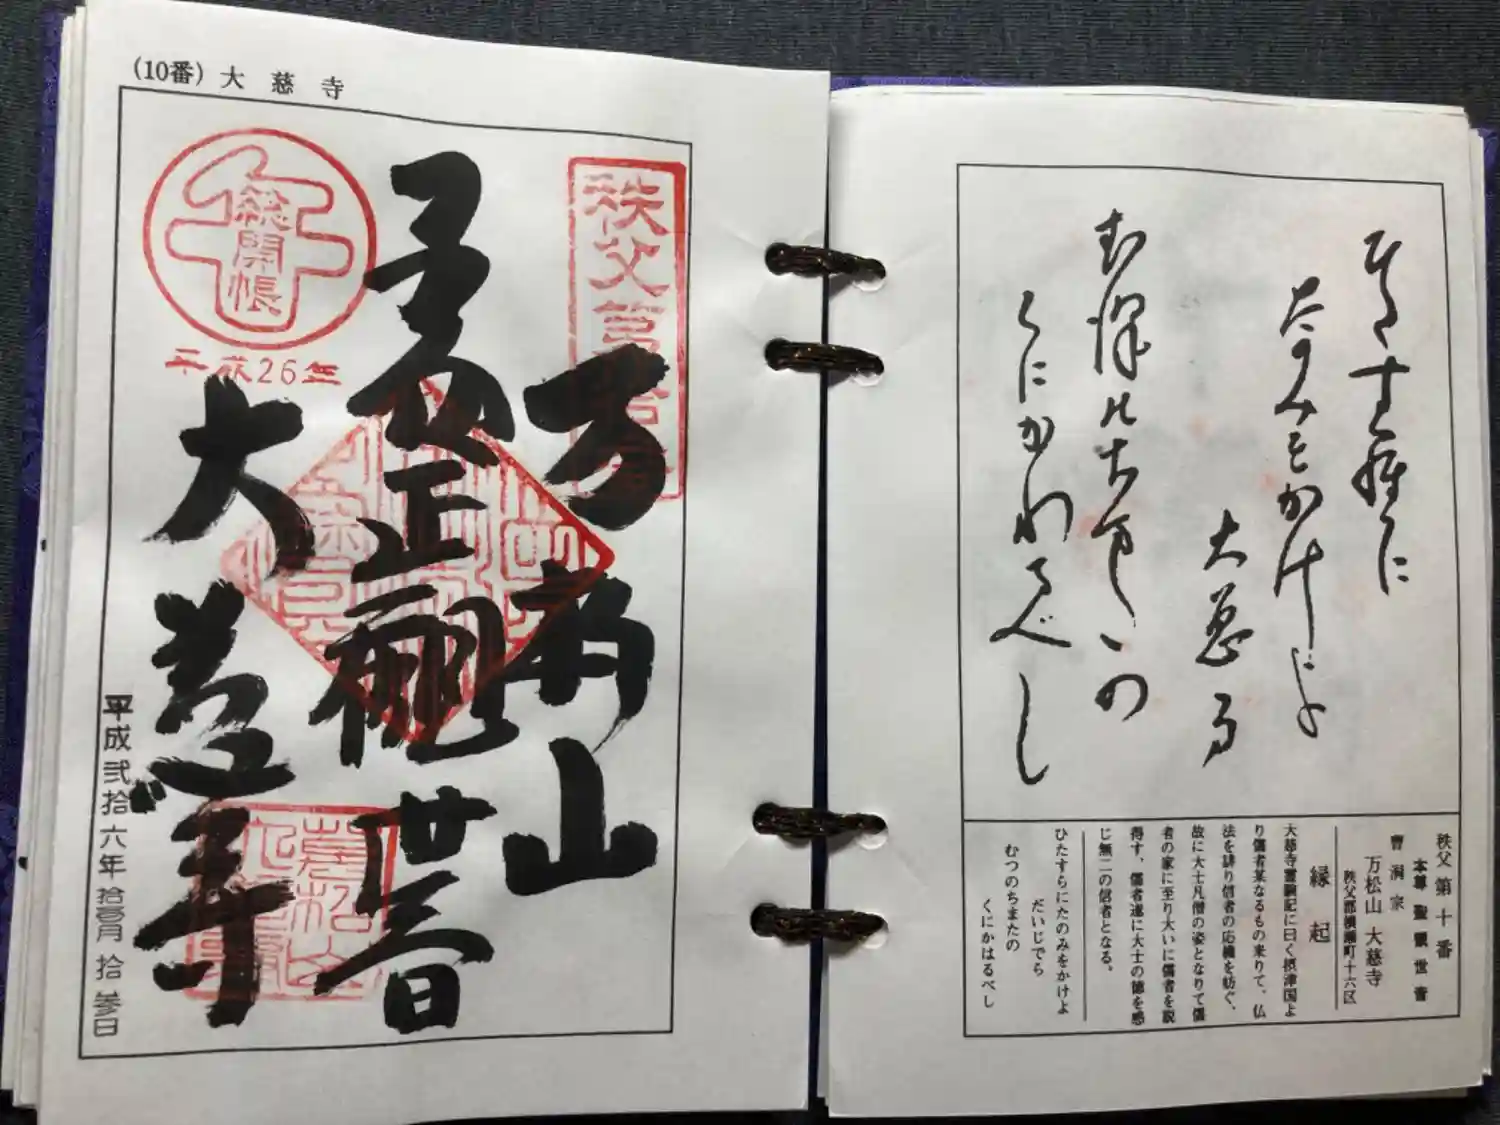 (10番) 大慈寺
総開帳
平成26年
秩父第拾番
万松山
聖観世音
大慈寺
萬松山
平成弐拾六年拾壱月拾参日
ひたすらに
たのみをかけよ
大慈寺
むつのちまたの
くにかわるべし
秩父第十番
本尊 聖観世音
曹洞宗
万松山 大慈寺
秩父郡横瀬町十六区
縁起
大慈寺霊験記に曰く摂津国よ
り儒者某なるもの来りて、仏
法を誹り信者の応機を妨ぐ、
故に大士凡僧の姿となりて儒
者の家に至り大いに儒者を説
得す、儒者遂に大士の徳を感
じ無二の信者となる。
ひたすらにたのみをかけよ
だいじでら
むつのちまたの
くにかはるべし